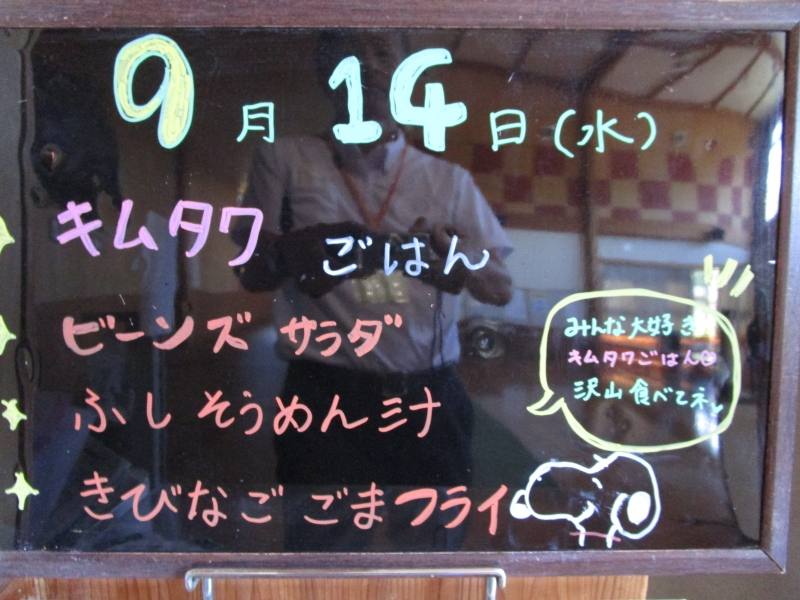 9月14日(水)
キムタワ ごはん
ビーンズ サラダ
ふし そうめん 汁
きびなご ごまフライ
みんな大好き
キムタワごはん
沢山食べてネ